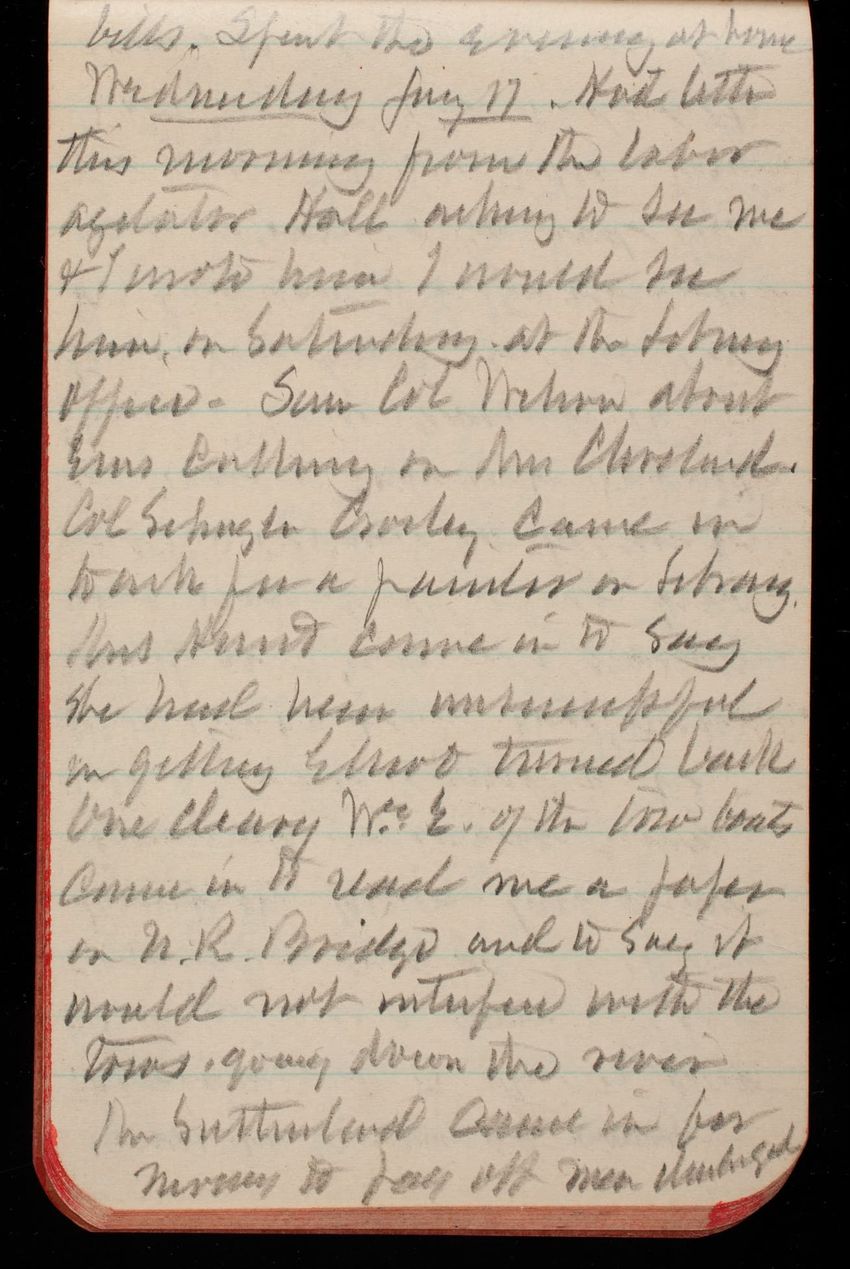 bills. Spent the evening at home
Wednesday Jany 17. Had letter
this morning from the labor
agitator Hall asking to see me
& I wrote him I would see
him, on Saturday at the Library
office. Saw Col Wilson about
calling on Mrs Cleveland.
Col Schuyler Crosby came in
to ask for a painter on Library.
Mrs Hunt came in to say
she had been unsuccessful
in getting turned back
One Cleary of the tow boats
came in to read me a paper
on N.R. Bridge and to say it
would not interfere with the
tows going down the river
Mr Sutherland came in for
money to pay off men discharged